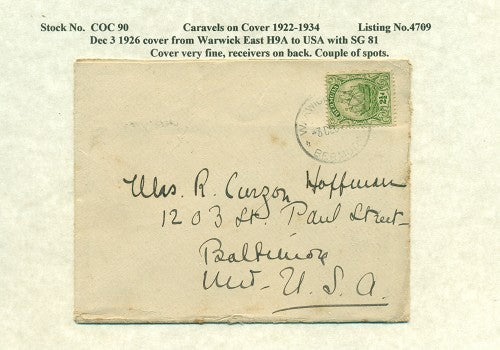 Stock No. COC 90 Caravels on Cover 1922-1934 Listing No.4709
Dec 3 1926 cover from Warwick East H9A to USA with SG 81
Cover very fine, receivers on back. Couple of spots.
2½
Mrs. R. Curzon Hoffman
1203 St. Paul Street
Baltimore
Md - U.S.A.